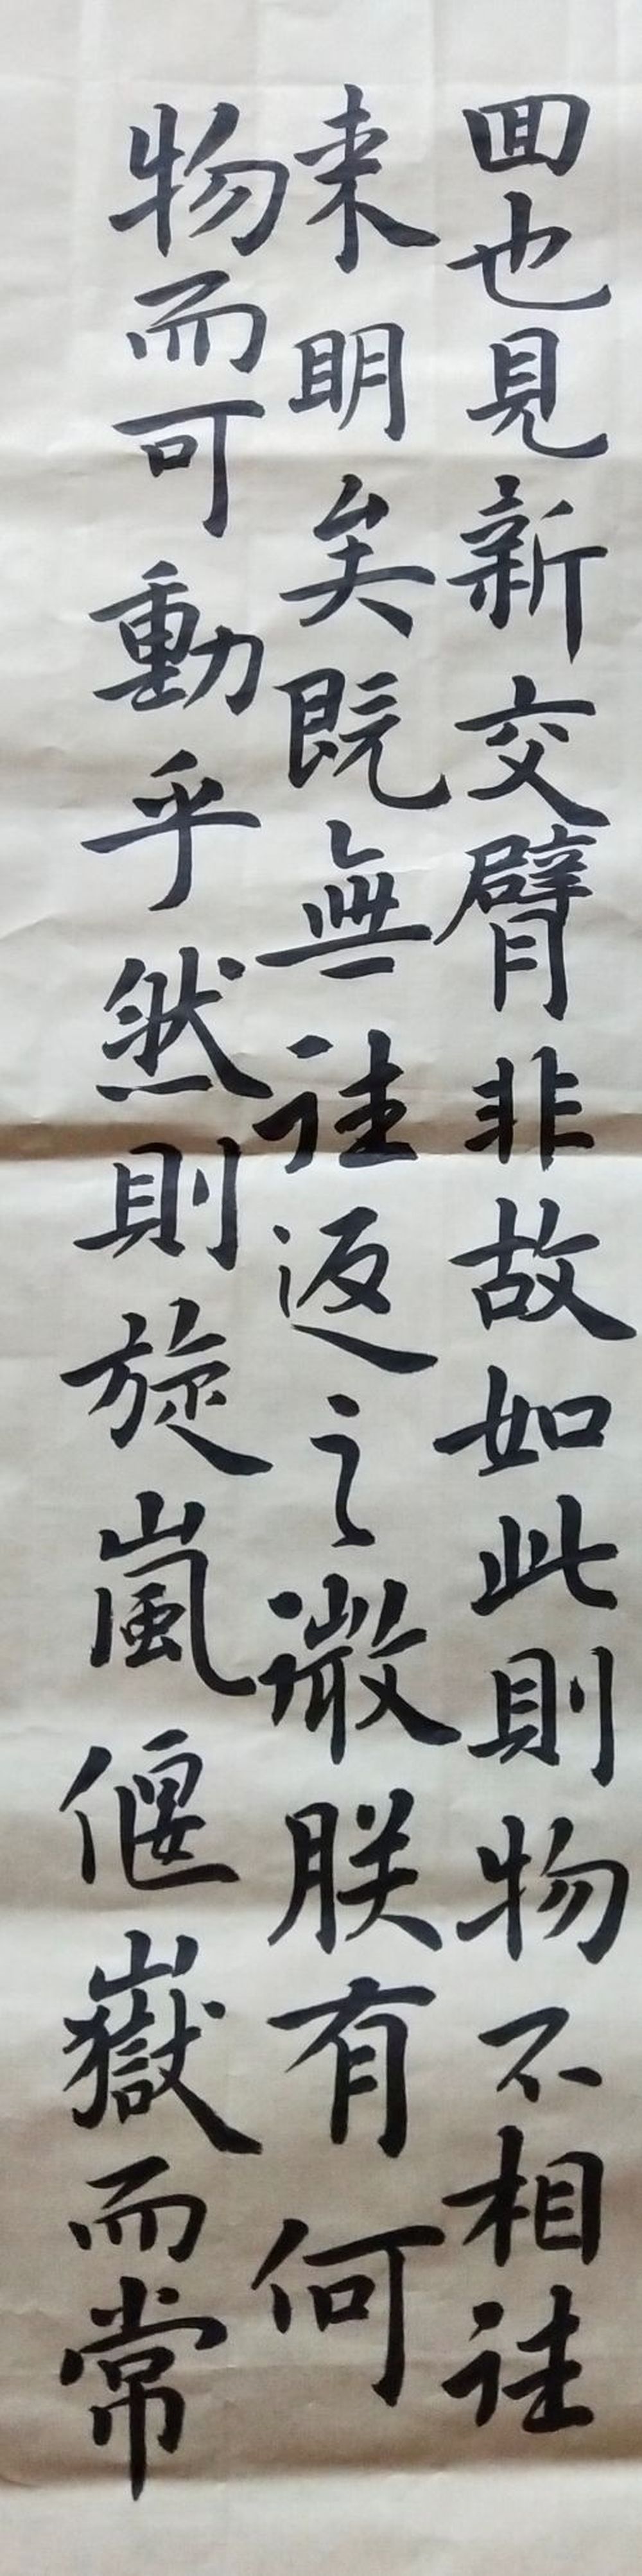 回也見新交臂非故如此則物不相往
来明矣既無往返之微朕有何
物而可動乎然則旋嵐偃嶽而常